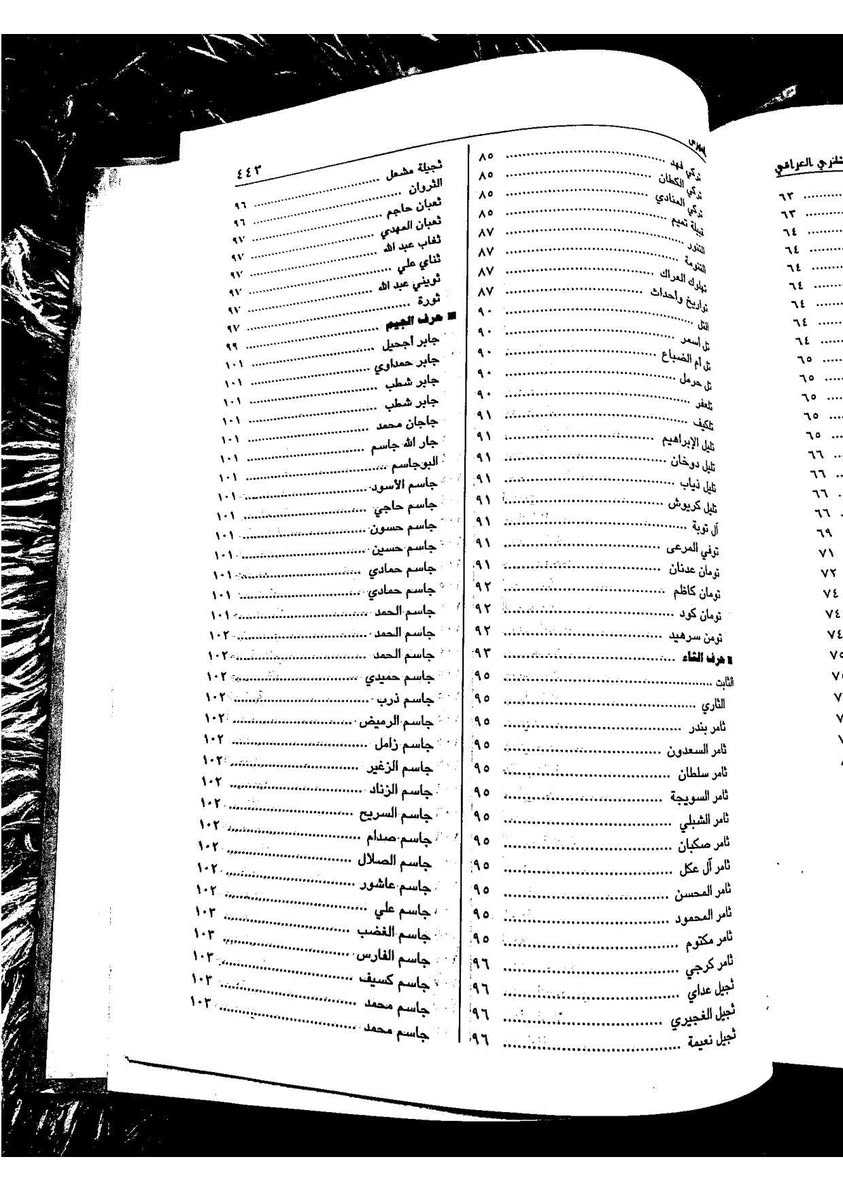 الفهرس ٤٤٣
تركي فهد ٨٥
تركي الكطان ٨٥
تركي المنادي ٨٥
نعيم ٨٥
التنور ٨٧
التنومة ٨٧
العراك ٨٧
تواريخ وأحداث ٨٧
التل ٩٠
تل أسمر ٩٠
تل أم الضباع ٩٠
تل حرمل ٩٠
تلعفر ٩٠
تلكيف ٩١
تليل الإبراهيم ٩١
تليل دوخان ٩١
تليل ذياب ٩١
تليل كريوش ٩١
آل توبة ٩١
توفي المرعى ٩١
تومان عدنان ٩١
تومان كاظم ٩٢
تومان كود ٩٢
تومن سرهيد ٩٢
■ حرف الثاء ٩٣
الثابت ٩٥
الثاري ٩٥
ثامر بندر ٩٥
ثامر السعدون ٩٥
ثامر سلطان ٩٥
ثامر السويجة ٩٥
ثامر الشبلي ٩٥
ثامر صكبان ٩٥
ثامر آل عكل ٩٥
ثامر المحسن ٩٥
ثامر المحمود ٩٥
ثامر مكتوم ٩٥
ثامر كرجي ٩٦
ثجيل عداي ٩٦
ثجيل الغجيري ٩٦
ثجيل نعيمة ٩٦
ثجيلة مشعل ٩٦
الثروان ٩٦
ثعبان حاجم ٩٧
ثعبان المهدي ٩٧
ثغاب عبد الله ٩٧
ثناي علي ٩٧
ثويني عبد الله ٩٧
ثورة ٩٧
■ حرف الجيم ٩٩
جابر أجحيل ١٠١
جابر حمداوي ١٠١
جابر شطب ١٠١
جابر شطب ١٠١
جاجان محمد ١٠١
جار الله جاسم ١٠١
البوجاسم ١٠١
جاسم الأسود ١٠١
جاسم حاجي ١٠١
جاسم حسون ١٠١
جاسم حسين ١٠١
جاسم حمادي ١٠١
جاسم حمادي ١٠١
جاسم الحمد ١٠١
جاسم الحمد ١٠٢
جاسم الحمد ١٠٢
جاسم حميدي ١٠٢
جاسم ذرب ١٠٢
جاسم الرميض ١٠٢
جاسم زامل ١٠٢
جاسم الزغير ١٠٢
جاسم الزناد ١٠٢
جاسم السريح ١٠٢
جاسم صدام ١٠٢
جاسم الصلال ١٠٢
جاسم عاشور ١٠٢
جاسم علي ١٠٢
جاسم الغضب ١٠٣
جاسم الفارس ١٠٣
جاسم كسيف ١٠٣
جاسم محمد ١٠٣
جاسم محمد ١٠٣
العراقي
٦٣
٦٣
٦٤
٦٤
٦٤
٦٤
٦٤
٦٤
٦٤
٦٥
٦٥
٦٥
٦٥
٦٦
٦٦
٦٦
٦٦
٦٩
٧١
٧٢
٧٤
٧٤
٧٤